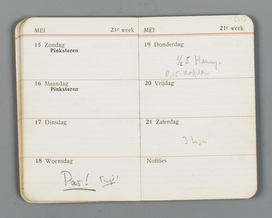 MEI 21e week
15 Zondag
Pinksteren
16 Maandag
Pinksteren
17 Dinsdag
18 Woensdag
Pas!
MEI 21e week
19 Donderdag
20 Vrijdag
21 Zaterdag
Notities